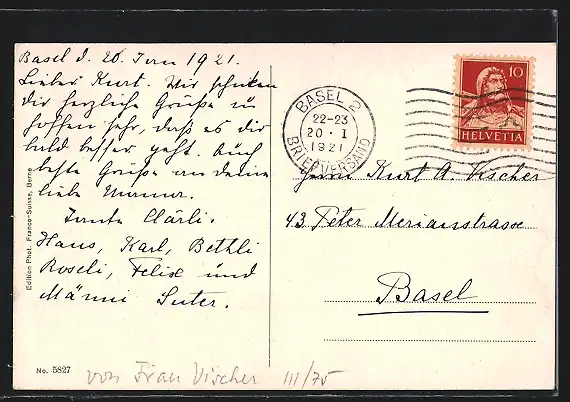 Basel d. 20. Jan 1921.
Lieber Kurt. Wir schicken
dir herzliche Grüße u
hoffen sehr, dass es dir
bald besser geht. Auch
beste Grüße an deine
liebe Mamma.
Tante Clärli.
Hans, Karl, Bethli
Roseli, Felix und
Männi Suter.
BASEL 2
22-23
20 · I
1921
BRIEFVERSAND
10
HELVETIA
Herrn Kurt A. Vischer
43 Peter Merianstrasse
Basel
Edition Phot. Franco-Suisse, Berne
No. 5827
von Frau Vischer III/75